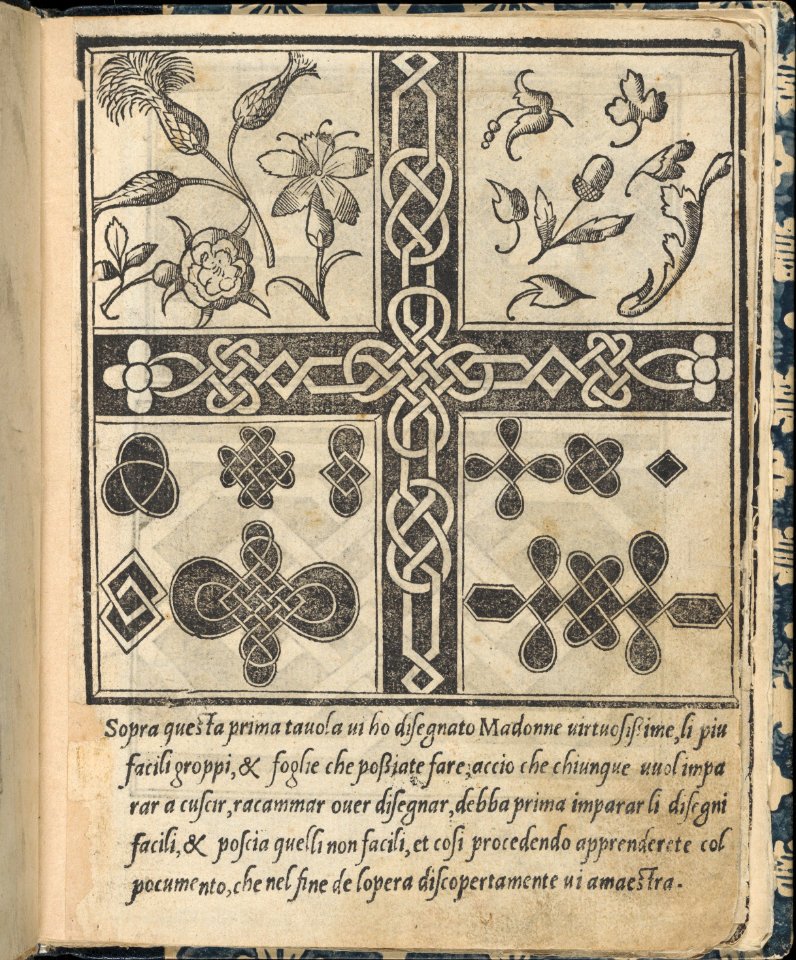 3
Sopra questa prima tauola ui ho disegnato Madonne uirtuosissime, li piu
facili groppi, & foglie che possiate fare, accio che chiunque uuol impa
rar a cuscir, racammar ouer disegnar, debba prima imparar li disegni
facili, & poscia quelli non facili, et cosi procedendo apprenderete col
pocumento, che nel fine de lopera discopertamente ui amaestra.